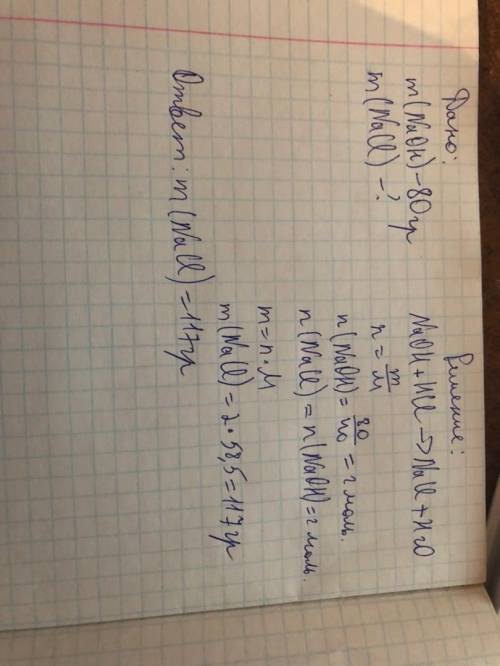 Дано:
m(NaOH)-80гр
m(NaCl)-?
Решение:
NaOH+HCl->NaCl+H2O
n=m/M
n(NaOH)=80/40=2моль.
n(NaCl)=n(NaOH)=2моль.
m=n·M
m(NaCl)=2·58,5=117гр
Ответ: m(NaCl)=117гр